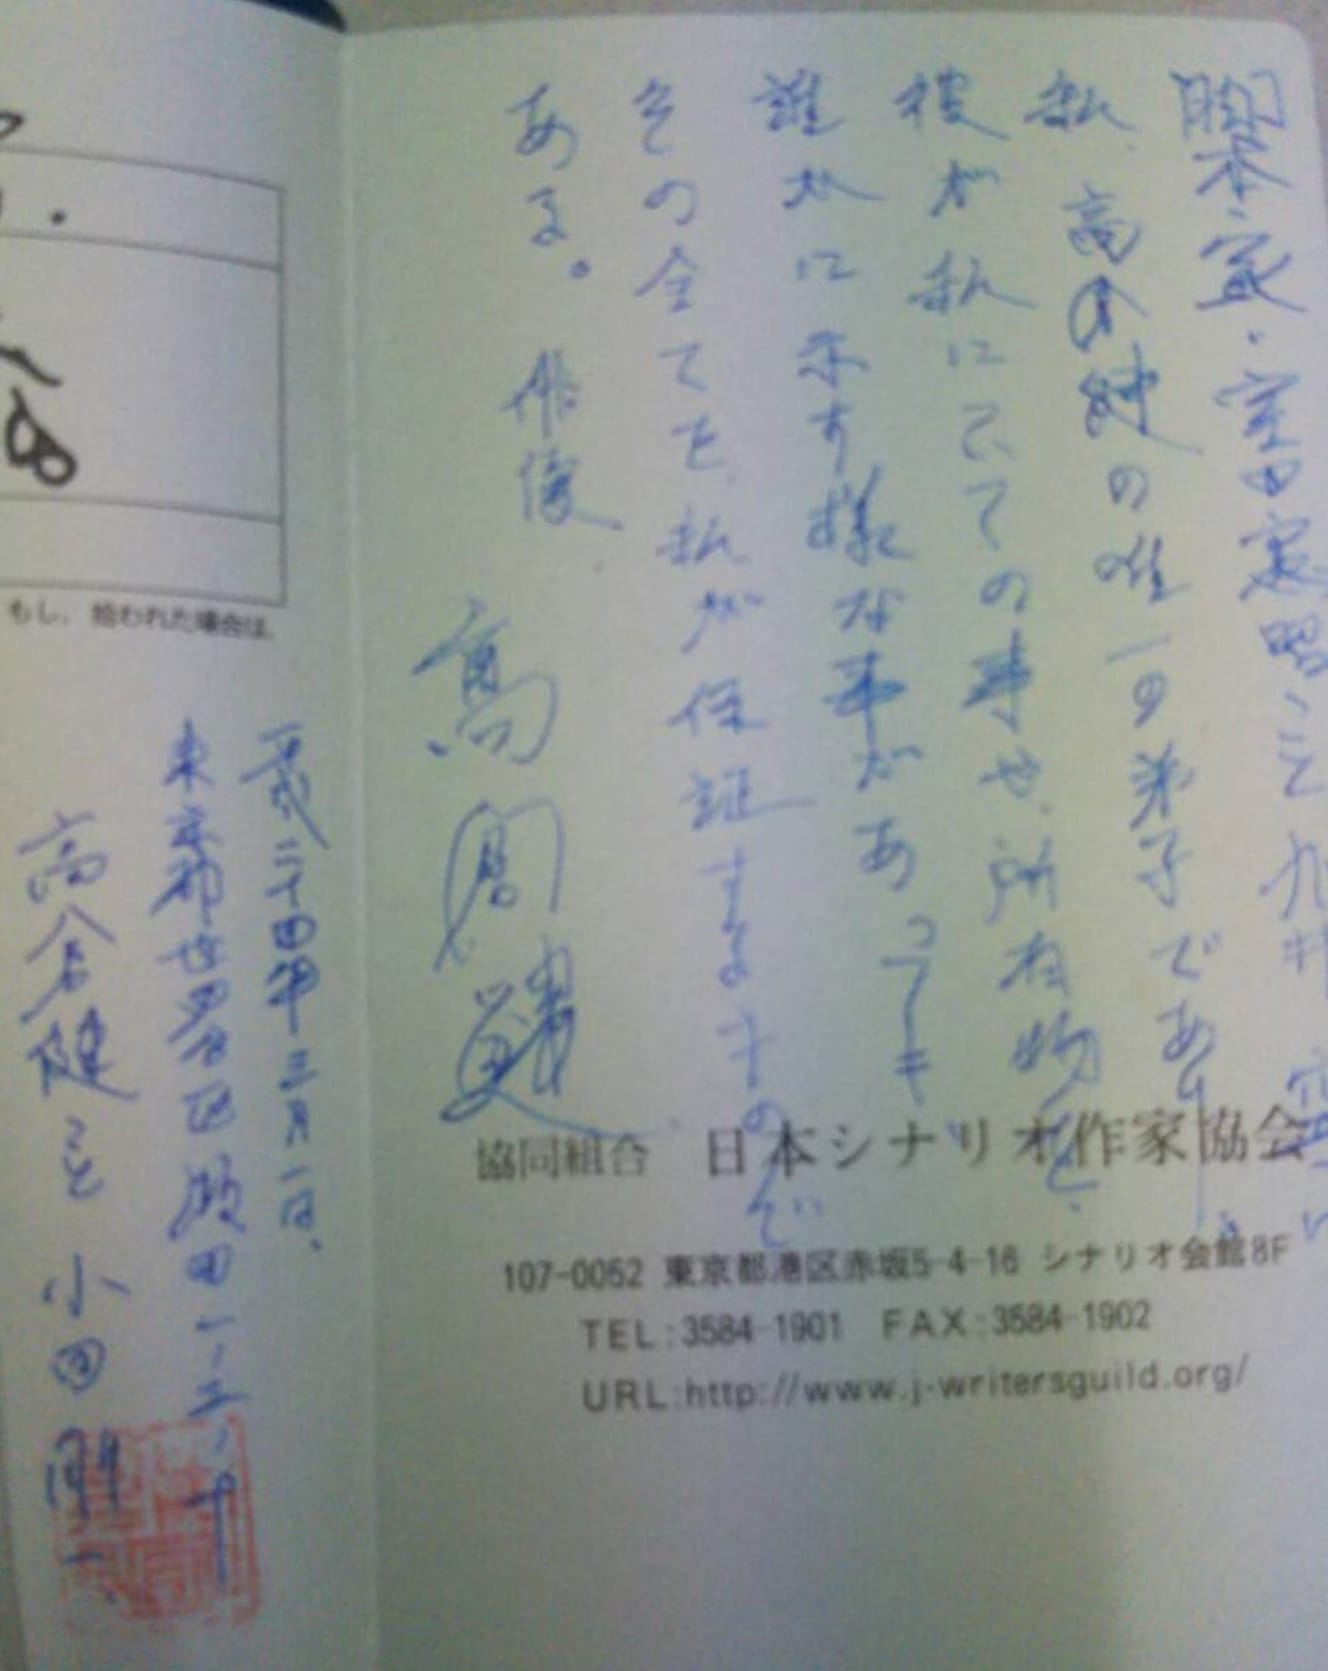 脚本家・室田憲昭こと九井
私、高倉健の唯一の弟子であり、
彼が私にとての事や、所有物を、
誰かに示す様な事があっても
その全てを、私が保証するもので
ある。 俳優
高倉健
平成二十四年三月一日、
東京都世田谷区瀬田一ノ三ノ十
高倉健こと 小田剛一
もし、拾われた場合は、
協同組合 日本シナリオ作家協会
107-0052 東京都港区赤坂5-4-16 シナリオ会館8F
TEL:3584-1901 FAX:3584-1902
URL:http://www.j-writersguild.org/